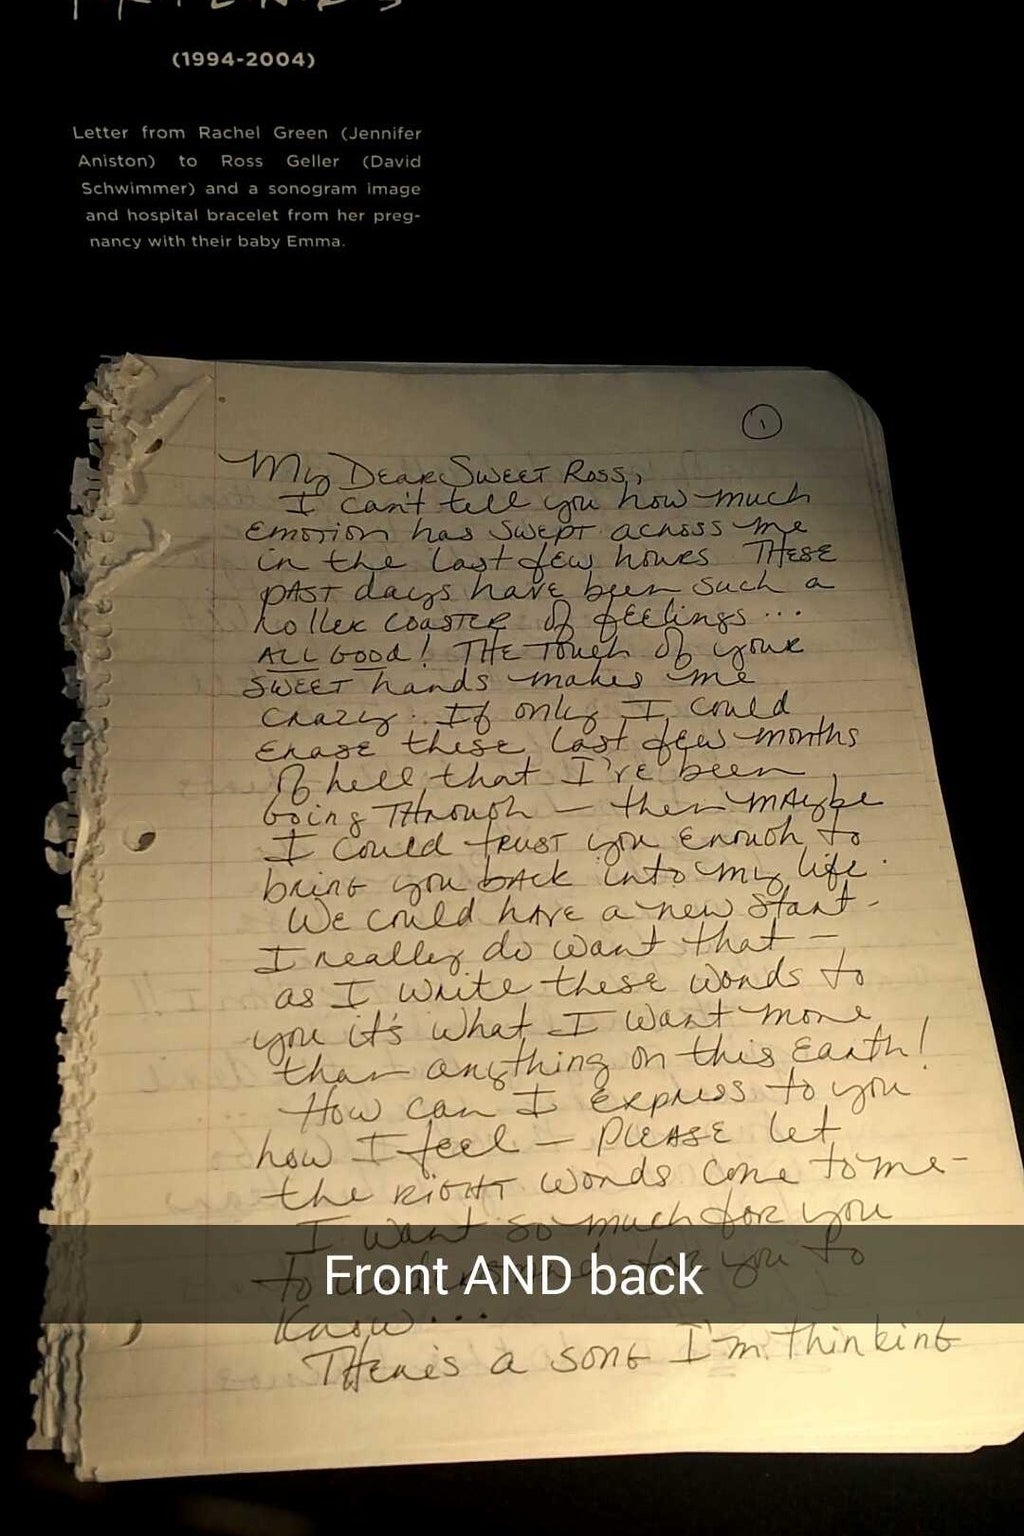 (1994-2004)
Letter from Rachel Green (Jennifer
Aniston) to Ross Geller (David
Schwimmer) and a sonogram image
and hospital bracelet from her preg-
nancy with their baby Emma.
1
My Dear Sweet Ross,
I can't tell you how much
emotion has swept across me
in the last few hours These
past days have been such a
roller coaster of feelings...
ALL GOOD! The touch of your
sweet hands makes me
crazy. If only I could
erase these last few months
of hell that I've been
going through — then maybe
I could trust you enough to
bring you back into my life.
We could have a new start-
I really do want that —
as I write these words to
you it's what I want more
than anything on this Earth!
How can I express to you
how I feel — Please let
the right words come to me-
I want so much for you
to understand, for you to
Front AND back
know...
There's a song I'm thinking